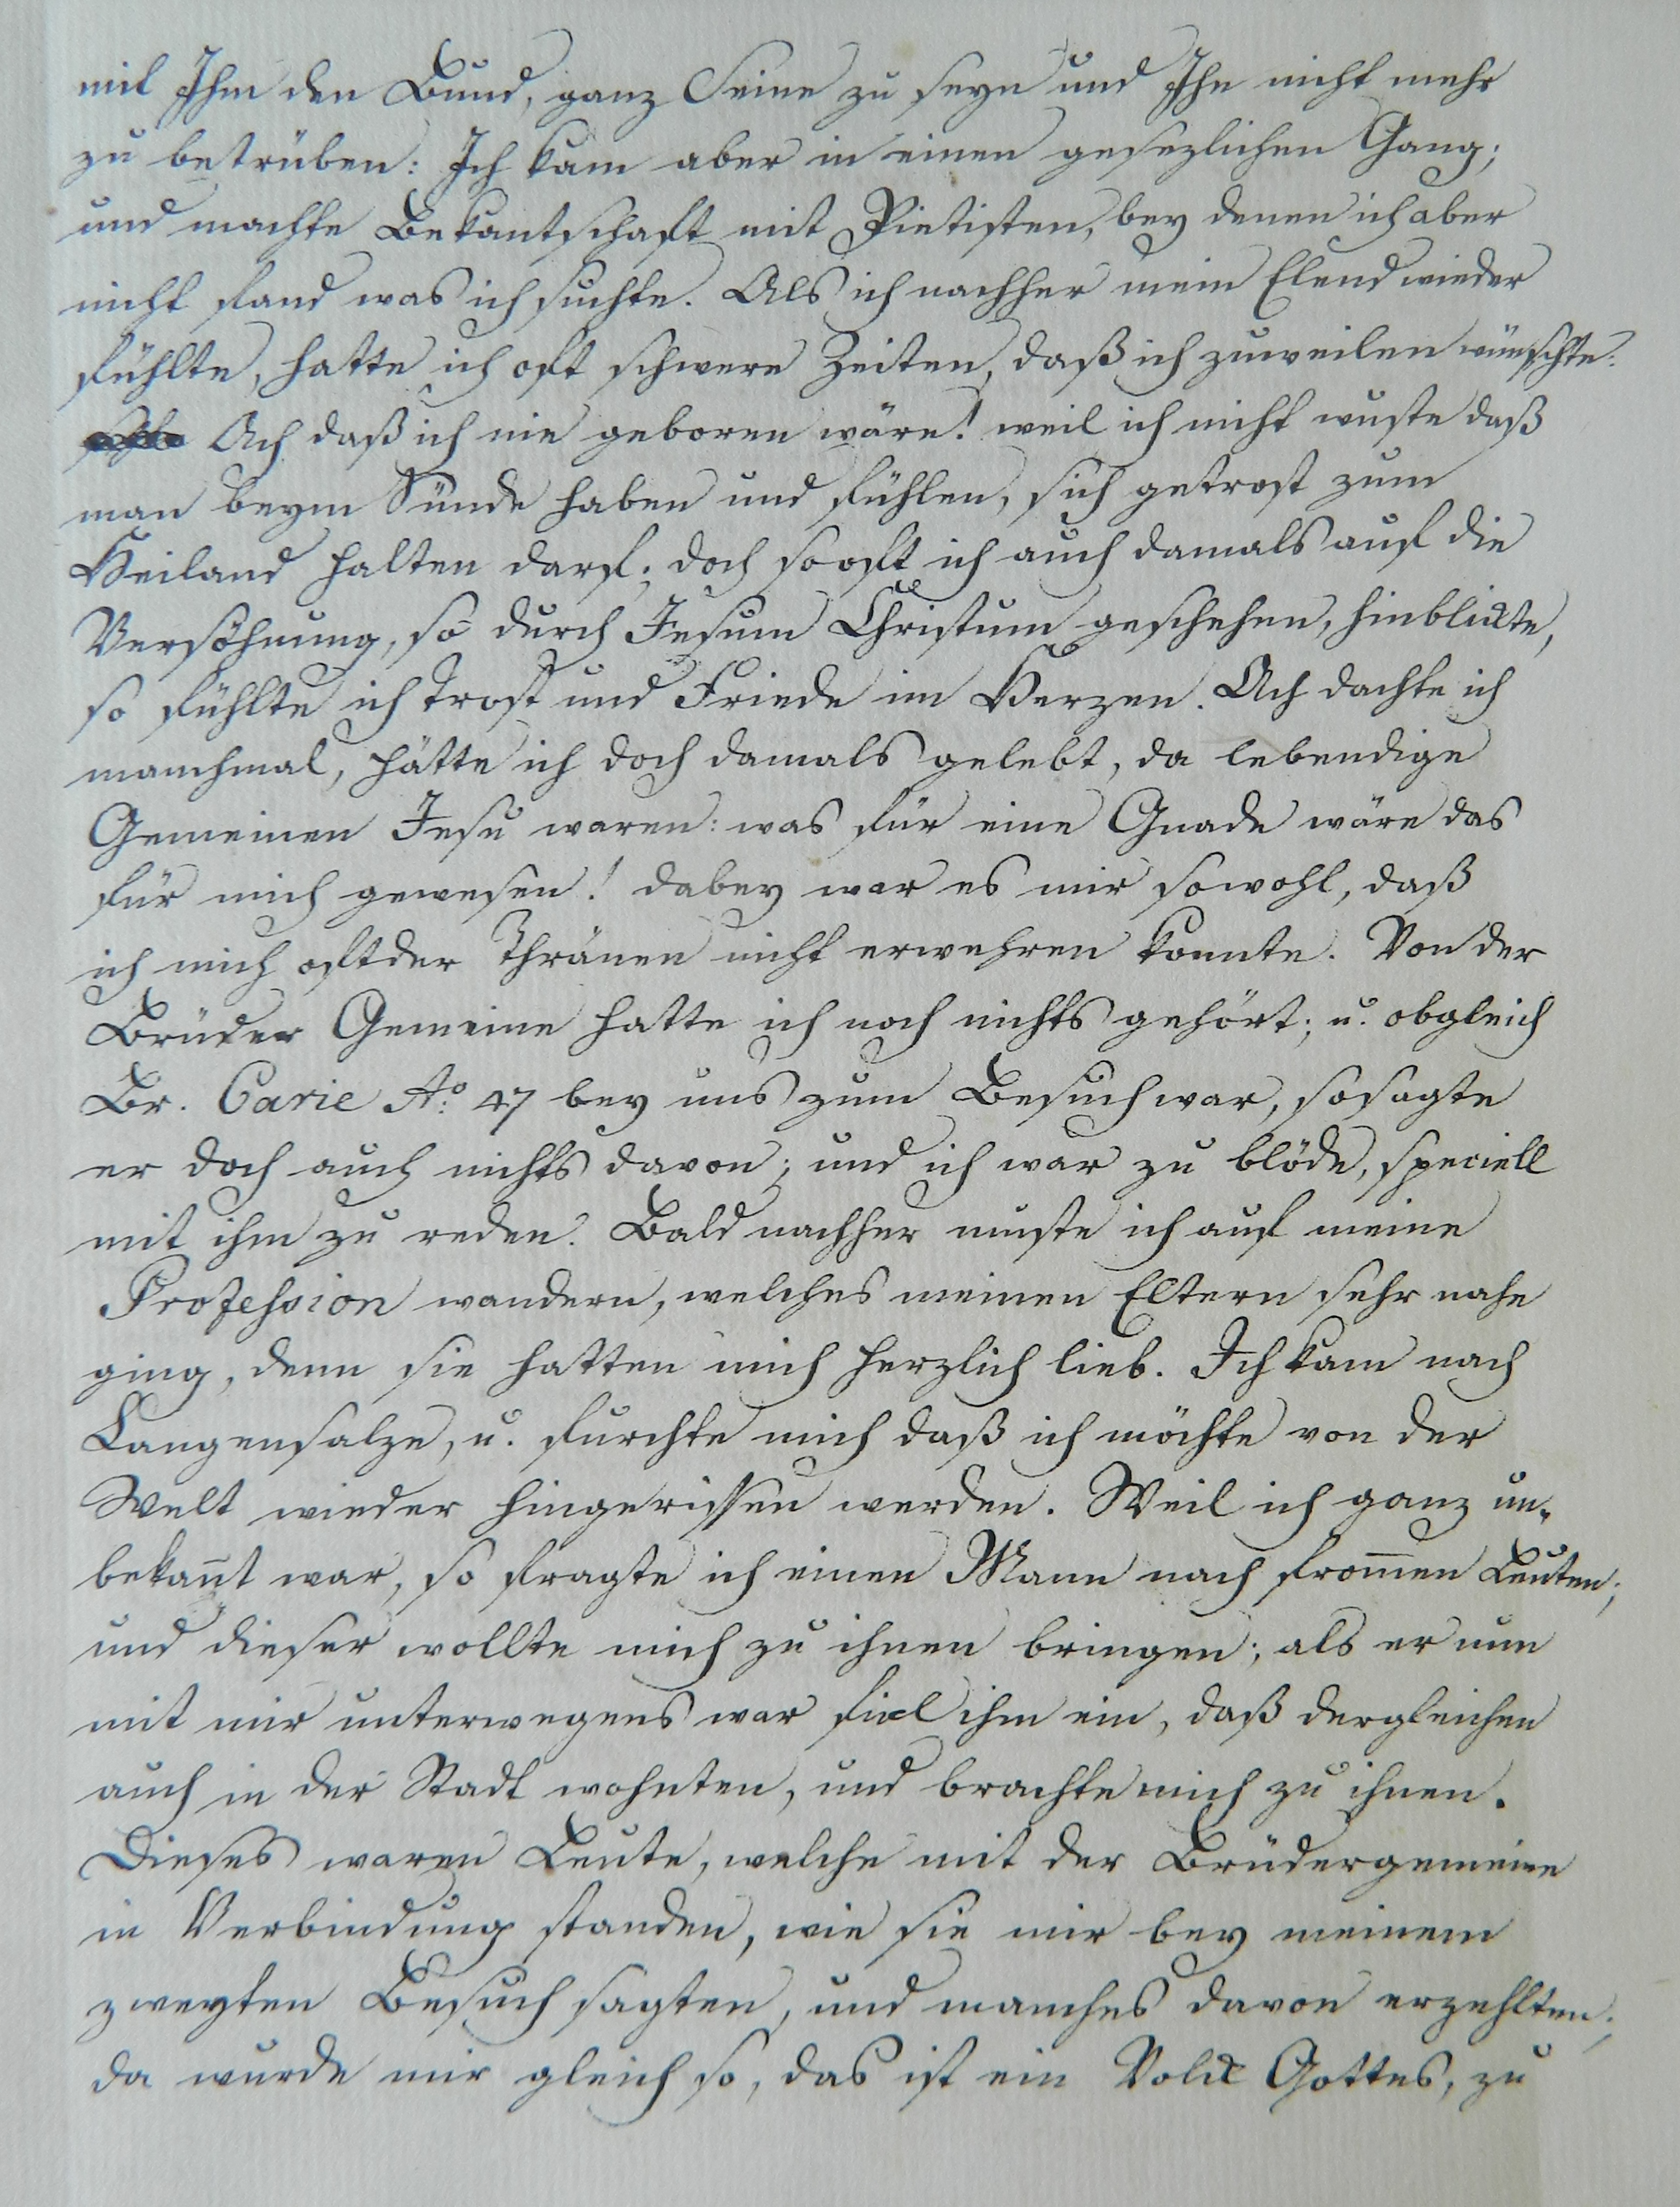 mit Ihm den Bund, ganz Seine zu seyn und Ihn nicht mehr
zu betrüben: Ich kam aber in einen gesezlichen Gang;
und machte Bekantschaft mit Pietisten, bey denen ich aber
nicht fand was ich suchte. Als ich nachher mein Elend wieder
fühlte, hatte ich oft schwere Zeiten, daß ich zuweilen wünschte:
Ach daß ich nie geboren wäre! weil ich nicht wuste daß
man beym Sünde haben und fühlen, sich getrost zum
Heiland halten darf; doch so oft ich auch damals auf die
Versöhnung, so durch Jesum Christum geschehen, hinblickte,
so fühlte ich Trost und Friede im Herzen. Ach dachte ich
manchmal, hätte ich doch damals gelebt, da lebendige
Gemeinen Jesu waren: was für eine Gnade wäre das
für mich gewesen! dabey war es mir so wohl, daß
ich mich oft der Thränen nicht erwehren konnte. Von der
Brüder Gemeine hatte ich noch nichts gehört; u. obgleich
Br. Carie Aº: 47 bey uns zum Besuch war, so sagte
er doch auch nichts davon; und ich war zu blöde, speciell
mit ihm zu reden. Bald nachher muste ich auf meine
Profession wandern, welches meinen Eltern sehr nahe
ging, denn sie hatten mich herzlich lieb. Ich kam nach
Langensalze, u. furchte mich daß ich möchte von der
Welt wieder hingerissen werden. Weil ich ganz un-
bekañt war, so fragte ich einen Mann nach from̄en Leuten;
und dieser wollte mich zu ihnen bringen; als er nun
mit mir unterwegens war fiel ihm ein, daß dergleichen
auch in der Stadt wohnten, und brachte mich zu ihnen.
Dieses waren Leute, welche mit der Brüdergemeine
in Verbindung standen, wie sie mir bey meinem
zweyten Besuch sagten, und manches davon erzehlten;
da wurde mir gleich so, das ist ein Volck Gottes, zu